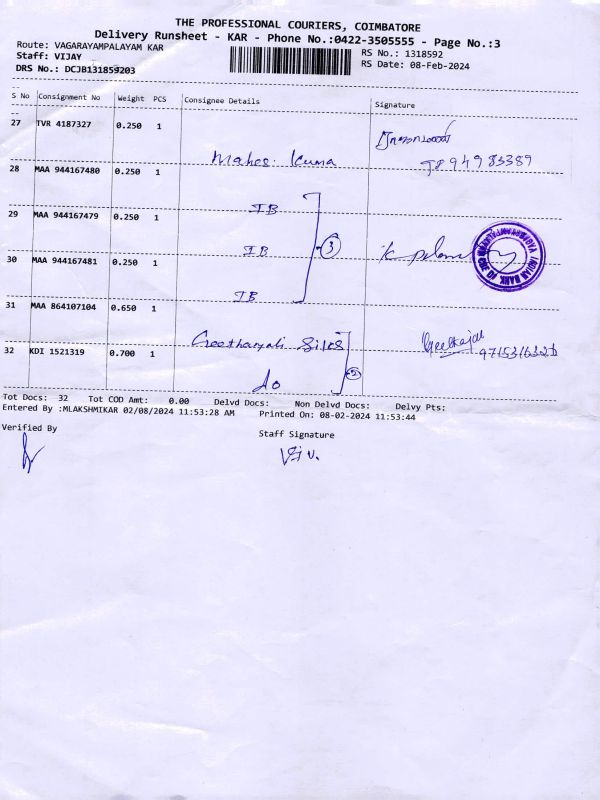 THE PROFESSIONAL COURIERS, COIMBATORE
Delivery Runsheet - KAR - Phone No.:0422-3505555 - Page No.:3
Route: VAGARAYAMPALAYAM KAR
RS No.: 1318592
Staff: VIJAY
RS Date: 08-Feb-2024
DRS No.: DCJB131859203
S No Consignment No Weight PCS Consignee Details Signature
27 TVR 4187327 0.250 1
Mahes. Kuma
28 MAA 944167480 0.250 1
IB
29 MAA 944167479 0.250 1
IB 3
30 MAA 944167481 0.250 1
IB
31 MAA 864107104 0.650 1
32 KDI 1521319 0.700 1
do
Tot Docs: 32 Tot COD Amt: 0.00 Delvd Docs: Non Delvd Docs: Delvy Pts:
Entered By :MLAKSHMIKAR 02/08/2024 11:53:28 AM Printed On: 08-02-2024 11:53:44
Verified By
Staff Signature